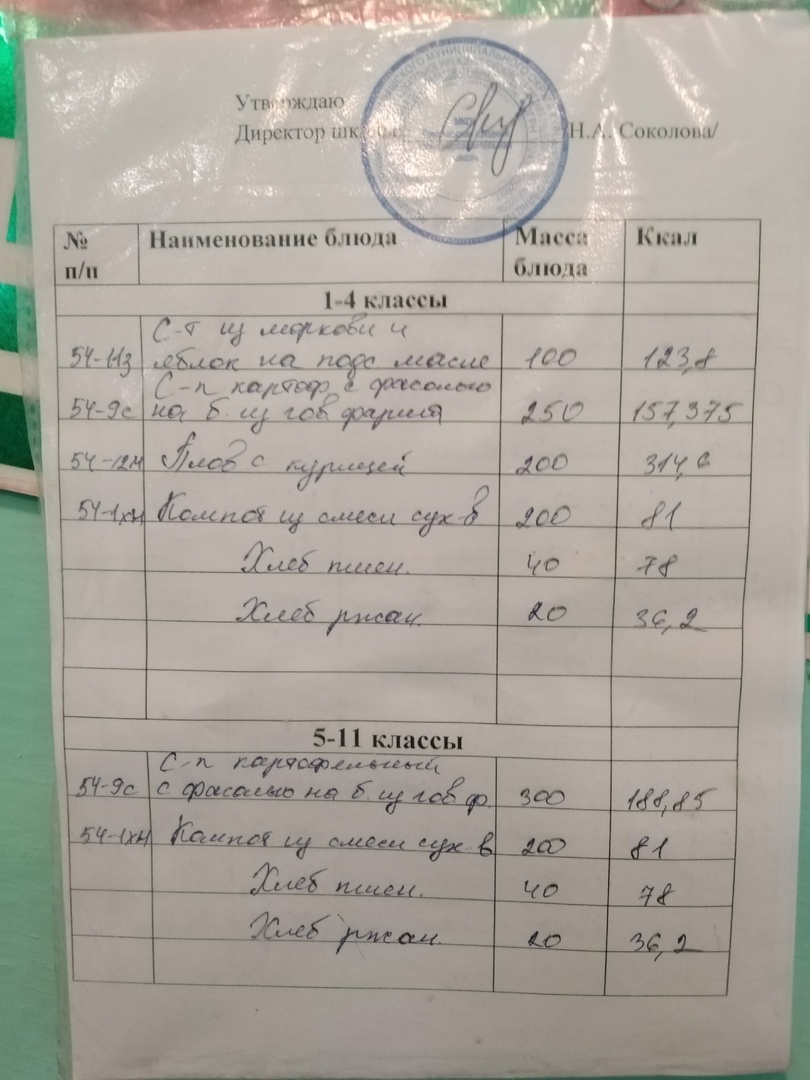 Утверждаю
Директор школы /Н.А. Соколова/
№ п/п Наименование блюда Масса блюда Ккал
1-4 классы
С-т из моркови и
54-11з яблок на подс масле 100 123,8
С-п картоф. с фасолью
54-9с на б. из гов фарша 250 157,375
54-12м Плов с курицей 200 314,6
54-1хн Компот из смеси сух-в 200 81
Хлеб пшен. 40 78
Хлеб ржан. 20 36,2
5-11 классы
С-п картофельный
54-9с с фасолью на б. из гов ф. 300 188,85
54-1хн Компот из смеси сух-в 200 81
Хлеб пшен. 40 78
Хлеб ржан. 20 36,2